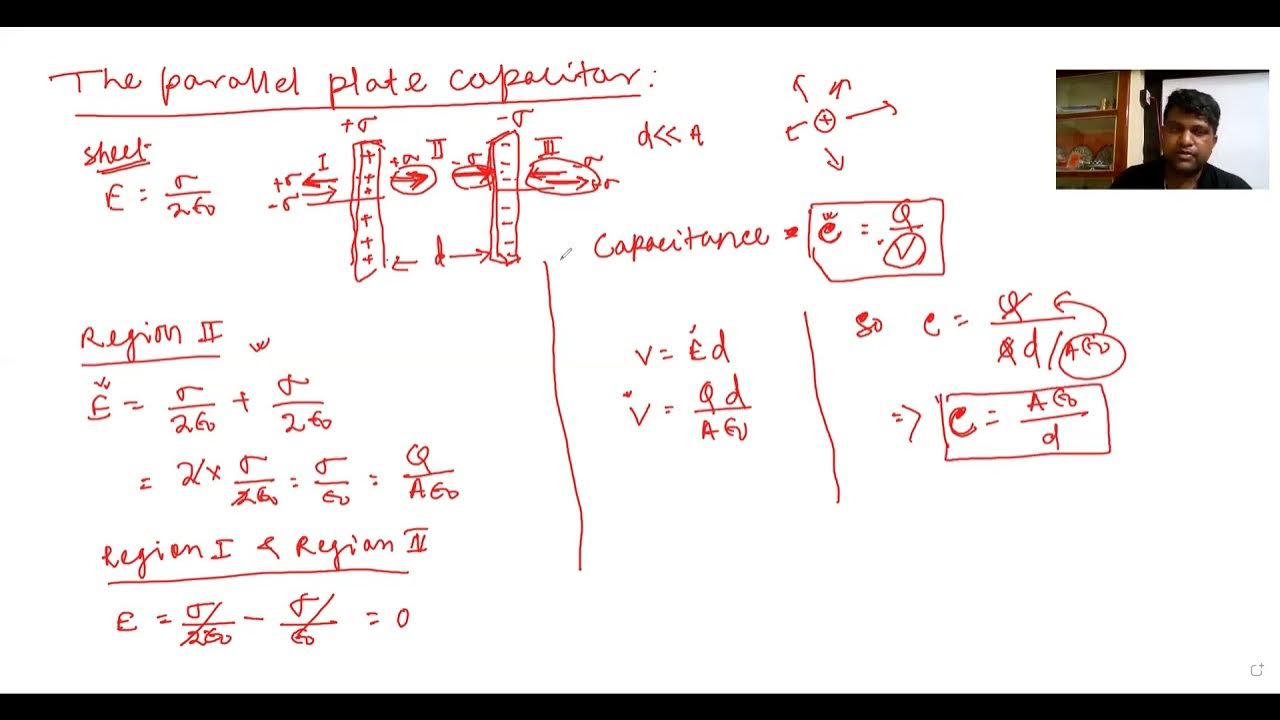 The parallel plate capacitor:
sheet
E = σ/2ε₀
+σ -σ
I +σ II -σ III -σ
+σ
-σ +σ
+ + + + + +
- - - - - - -
d
d<< A
+
Capacitance = C = Q/V
Region II
E = σ/2ε₀ + σ/2ε₀
= 2 × σ/2ε₀ = σ/ε₀ = Q/Aε₀
Region I & Region III
E = σ/2ε₀ - σ/ε₀ = 0
V = Ed
V = Qd/Aε₀
So C = Q/Qd/Aε₀
=> C = Aε₀/d